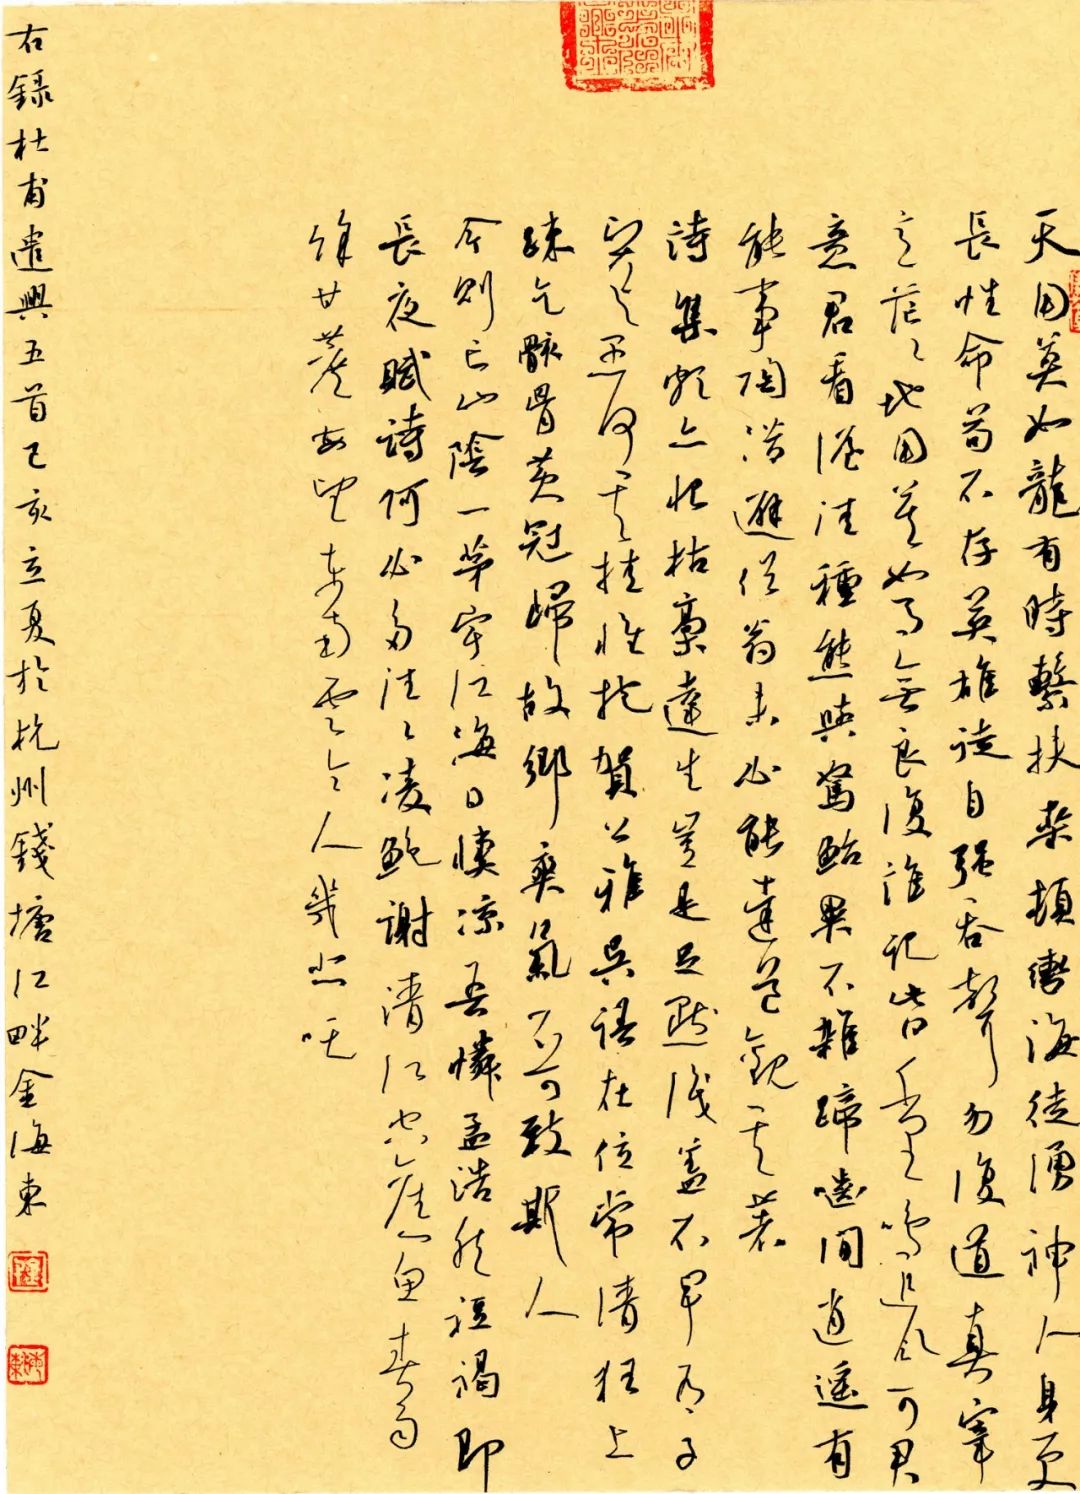 天用莫如龍有時繫扶桑頓轡海徒湧神人身更
長性命苟不存英雄徒自强吞聲勿復道真宰
意茫々地用莫如馬無良復誰記此日千里鳴追風可君
意君看渥洼種態與駑駘異不雜蹄齧間逍遙有
能事陶潛避俗翁未必能達道觀其著
詩集頗亦恨枯槁達生豈是足默識蓋不早有子
賢與愚何其挂懷抱賀公雅吳語在位常清狂上
疎乞骸骨黃冠歸故鄉爽氣不可致斯人
今則亡山陰一茅宇江海日悽涼吾憐孟浩然裋褐即
長夜賦詩何必多往々凌鮑謝清江空舊魚春雨
餘甘蔗每望東南雲令人幾悲吒
右錄杜甫遣興五首己亥立夏於杭州錢塘江畔金海東